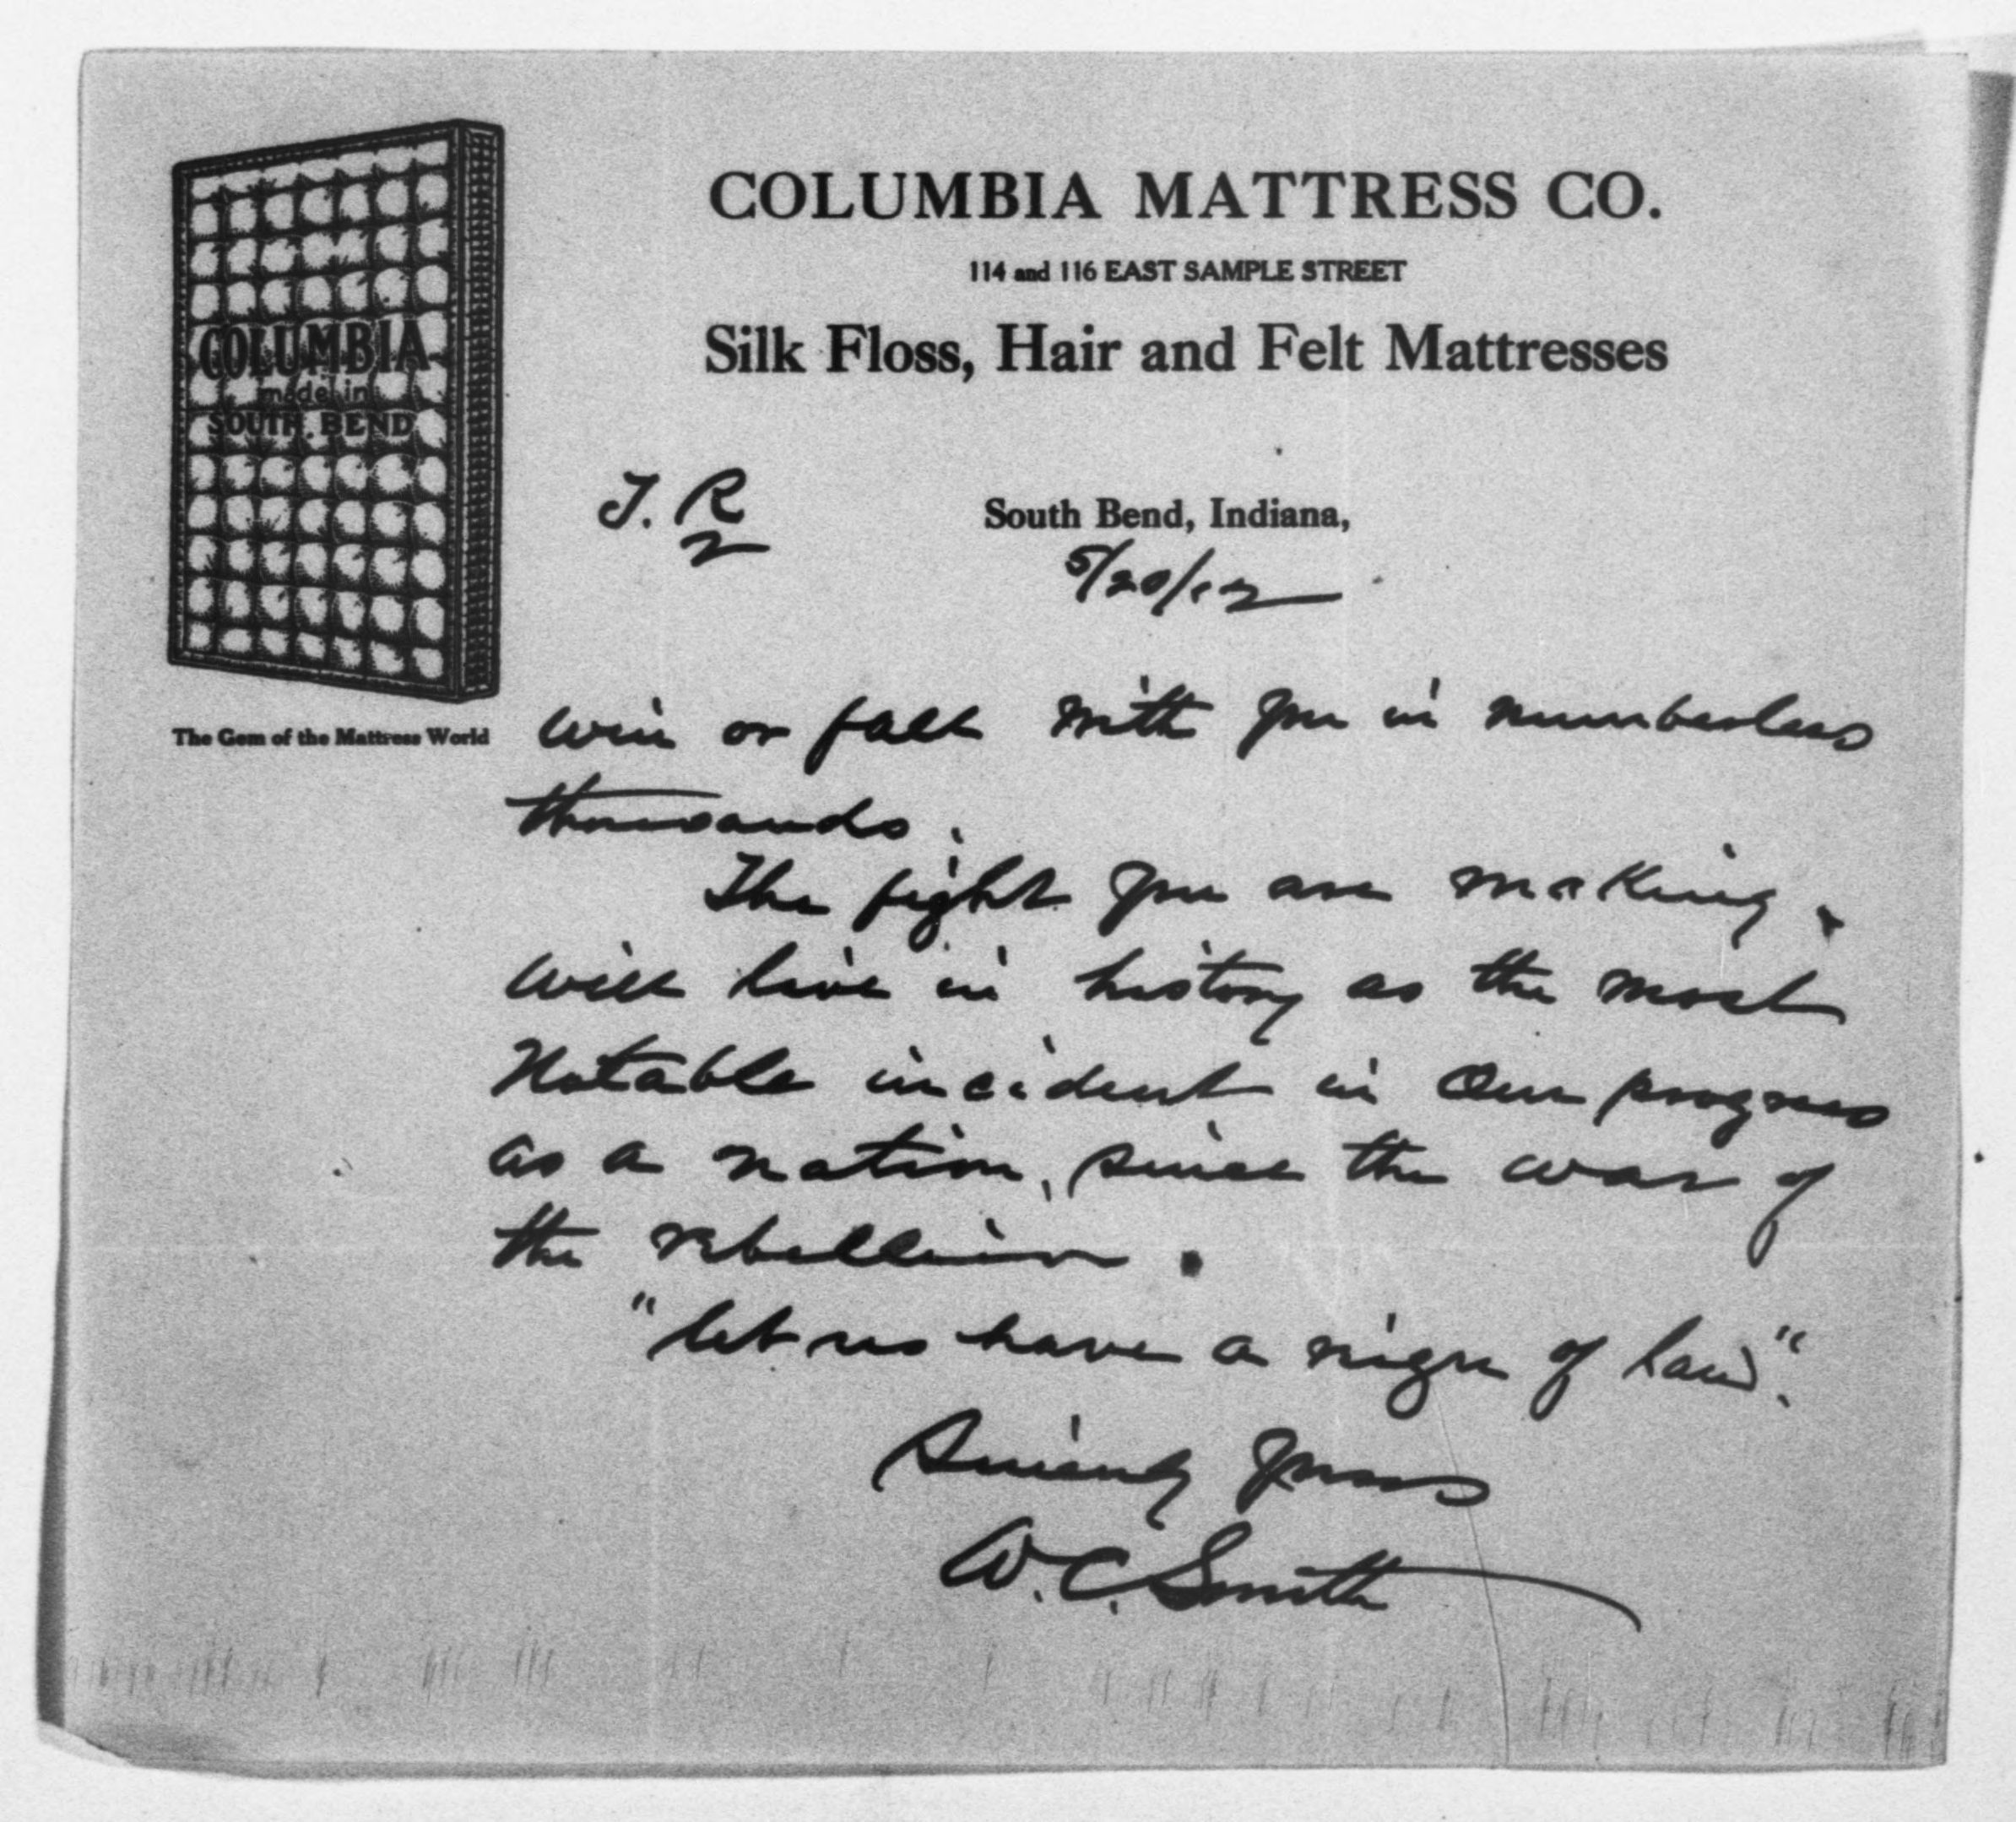 COLUMBIA MATTRESS CO.
114 and 116 EAST SAMPLE STREET
Silk Floss, Hair and Felt Mattresses
COLUMBIA
made in
SOUTH BEND
The Gem of the Mattress World
T. R
2
South Bend, Indiana,
5/20/12
win or fall with you in numberless
thousands.
The fight you are making,
will live in history as the most
Notable incident in Our progress
as a nation, since the war of
the rebellion.
"let us have a reign of law".
Sincerely Yours
W. C. Smith